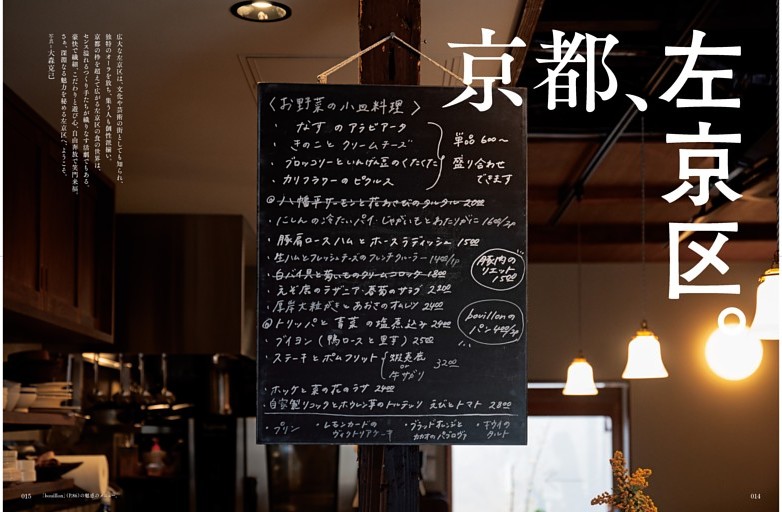 京都、左京区。
広大な左京区は、文化や芸術の街としても知られ、
独特のオーラを放ち、集う人も個性派揃い。
京都の枠を超えて広がる左京区の食の世界は、
センス溢れるつくり手たちが織りなす活劇でもある。
豪快で繊細、こだわりと遊び心、自由奔放で笑門来福。
さぁ、深淵なる魅力を秘める左京区へ、ようこそ。
写真=大森克己
〈お野菜の小皿料理〉
・なすのアラビアータ
・きのことクリームチーズ
・ブロッコリーといんげん豆のくたくた
・カリフラワーのピクルス
単品 600〜
盛り合わせ
できます
八幡平サーモンと花わさびのタルタル 2000
・にしんの冷たいパイ・じゃがいもとあたりがに 1600/2p
・豚肩ロースハムとホースラディッシュ 1500
・生ハムとフレッシュチーズのフレンチクーラー 1400/1p
・白バイ貝と菊いものクリームコロッケ 1800
・えぞ鹿のラザニア・春菊のサラダ 2200
・厚岸大粒がきとあおさのオムレツ 2400
トリッパと青菜の塩煮込み 2400
・ブイヨン(鴨ロースと里芋) 2500
・ステーキとポムフリット
蝦夷鹿
or
牛サガリ
3200
・ホッケと菜の花のフリット 2400
・自家製リコッタとホウレン草のトルテッリ えびとトマト 2800
豚肉の
リエット
1500
bouillonの
パン 400/2p
・プリン
・レモンカードの
ヴィクトリアケーキ
・ブラッドオレンジと
カカオのパブロヴァ
・キウイの
タルト
015
014